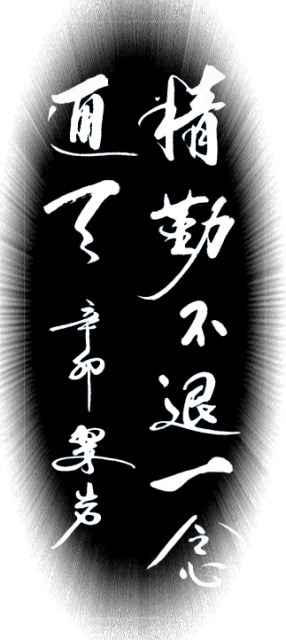 精勤不退一念
通天 辛卯 翠岩